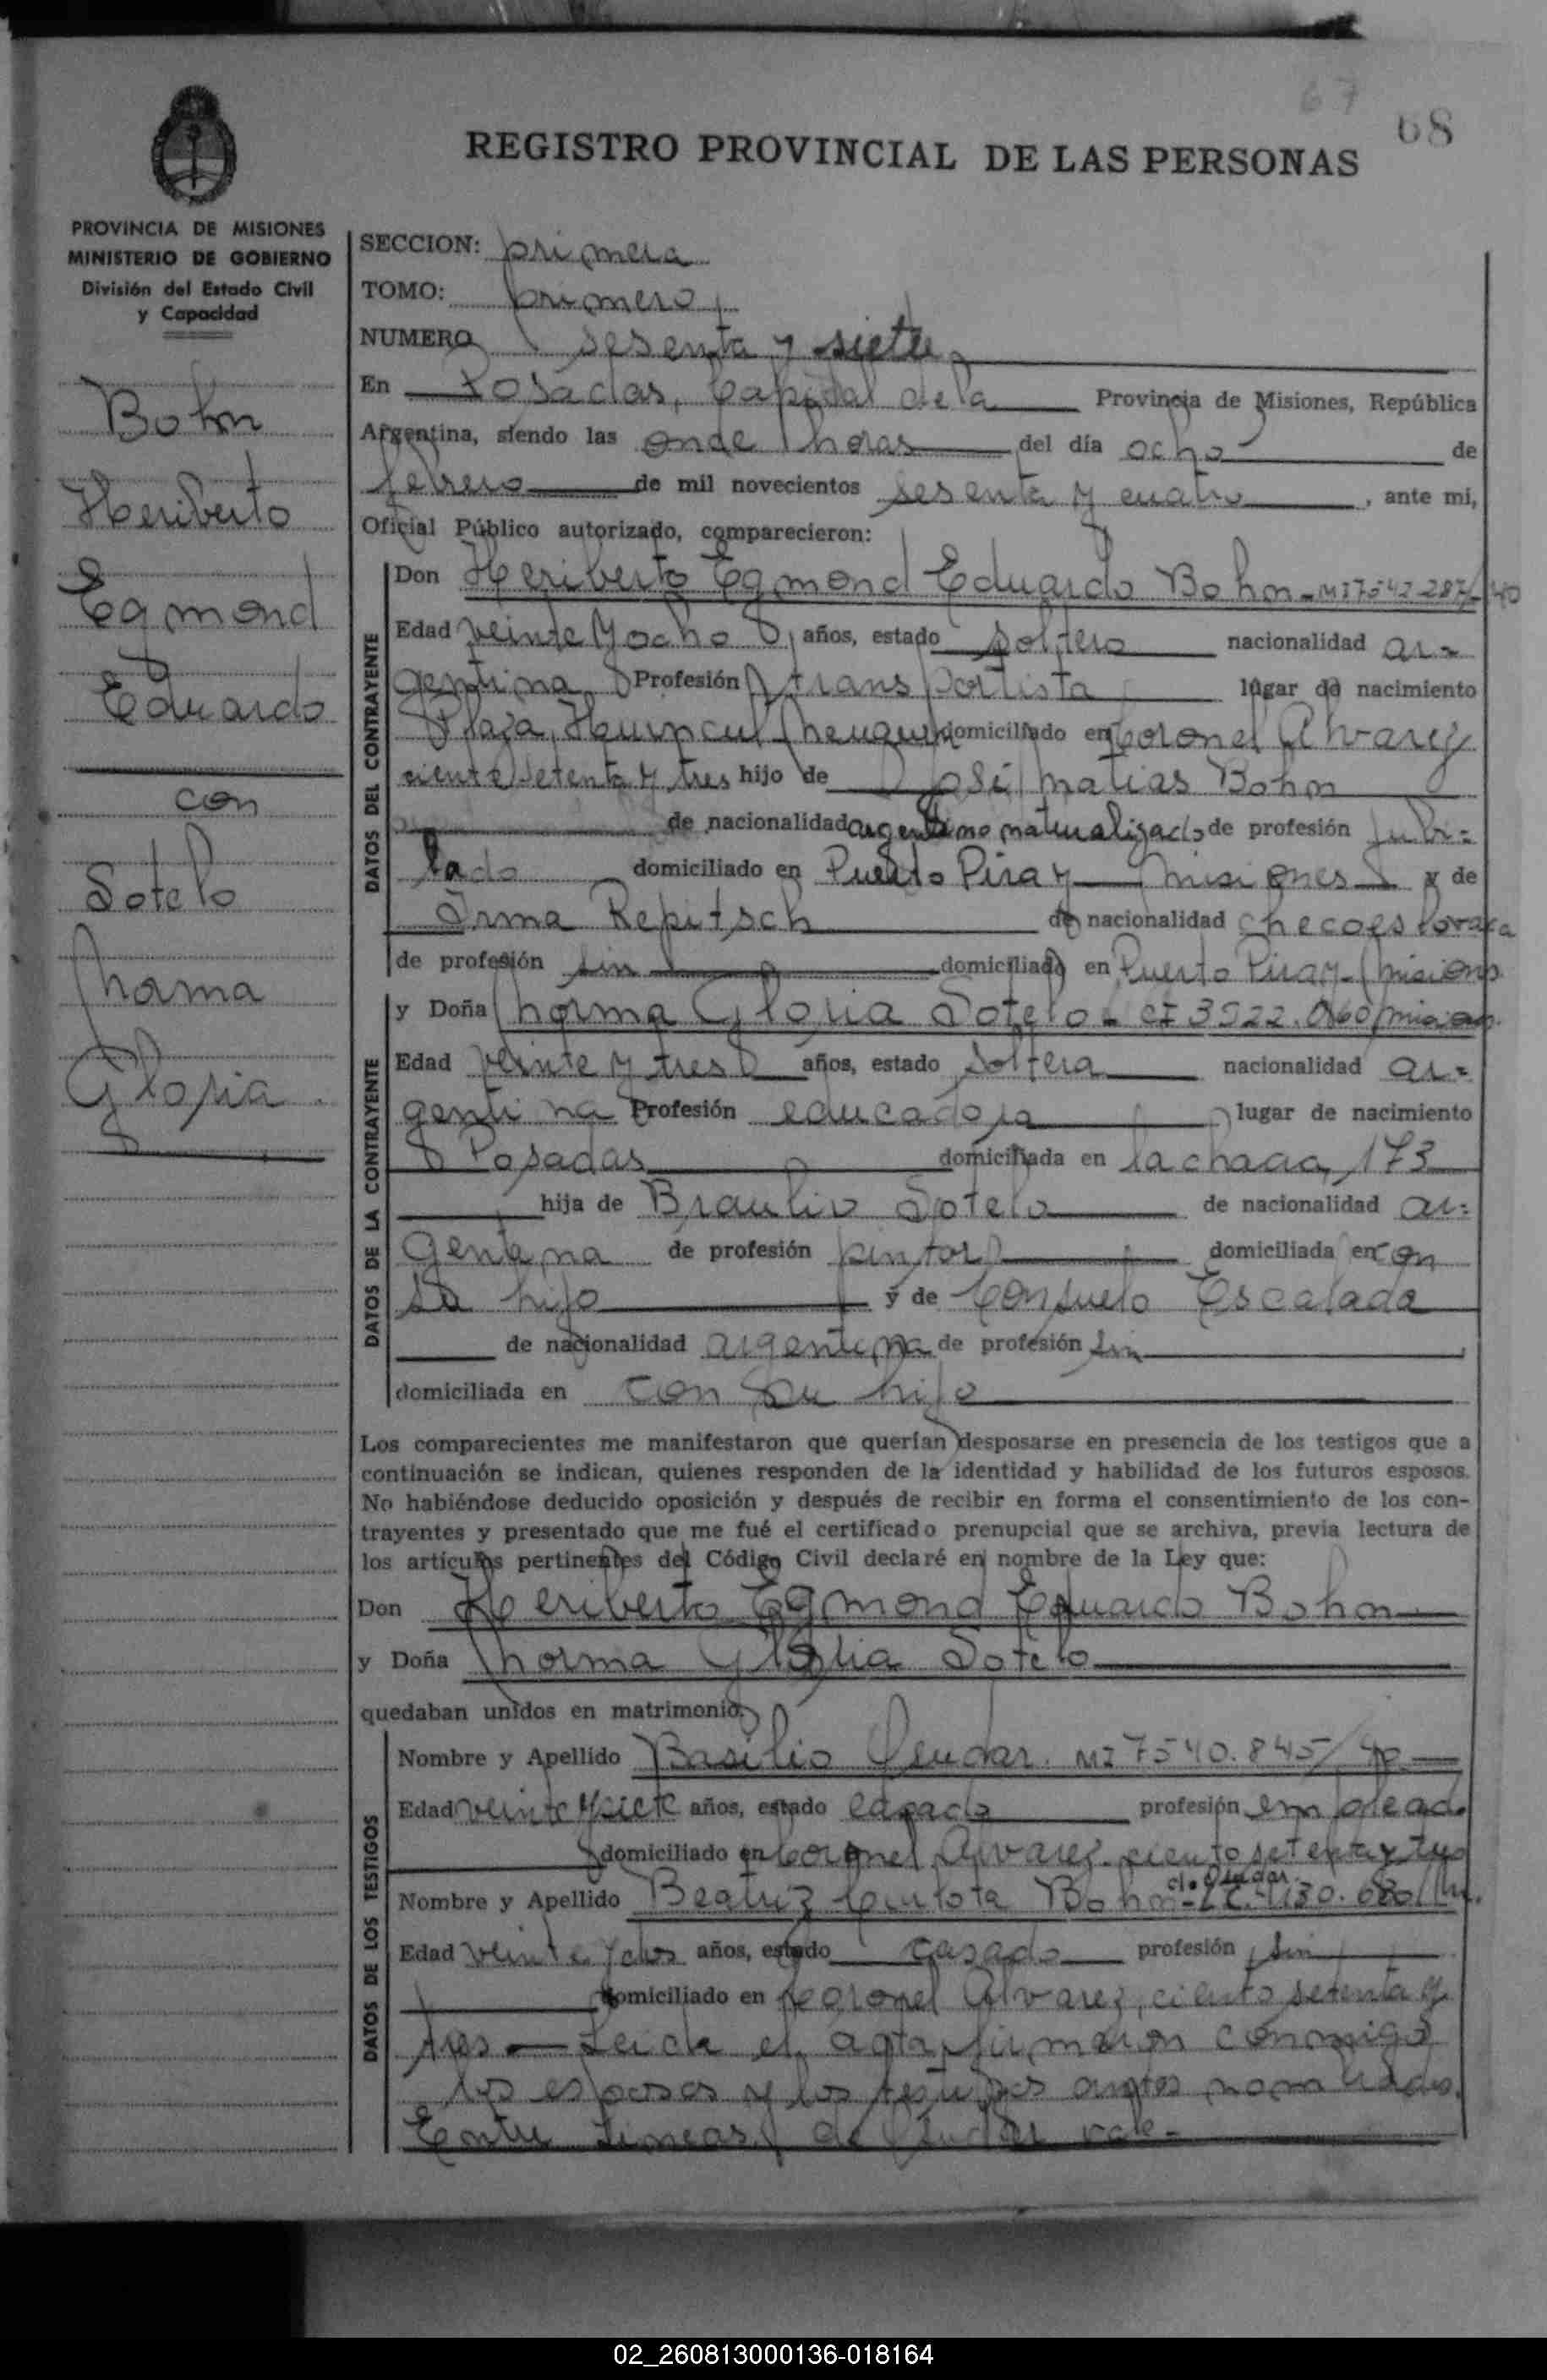 67
68
REGISTRO PROVINCIAL DE LAS PERSONAS
PROVINCIA DE MISIONES
MINISTERIO DE GOBIERNO
División del Estado Civil
y Capacidad
Bohn
Heriberto
Egmond
Eduardo
con
Sotelo
Norma
Gloria.
SECCION: primera
TOMO: primero
NUMERO sesenta y siete
En Posadas, Capital de la Provincia de Misiones, República
Argentina, siendo las once horas del día ocho de
febrero de mil novecientos sesenta y cuatro, ante mi,
Oficial Público autorizado, comparecieron:
DATOS DEL CONTRAYENTE
Don Heriberto Egmond Eduardo Bohn - MI 7542287/40
Edad veinte y ocho años, estado soltero nacionalidad ar=
gentina Profesión transportista lugar de nacimiento
Plaza Huincul Neuquen domiciliado en Coronel Alvarez
ciento setenta y tres hijo de José Matias Bohn
de nacionalidad argentino naturalizado de profesión Jubi=
lado domiciliado en Puerto Piray Misiones y de
Irma Repitsch de nacionalidad checoeslovaca
de profesión sin domiciliado en Puerto Piray - Misiones
DATOS DE LA CONTRAYENTE
y Doña Norma Gloria Sotelo - CI 3922.060 Misiones
Edad veinte y tres años, estado soltera nacionalidad ar=
gentina Profesión educadora lugar de nacimiento
Posadas domiciliada en la chacra, 173
hija de Braulio Sotelo de nacionalidad ar=
gentina de profesión pintor domiciliada en con
su hijo y de Consuelo Escalada
de nacionalidad argentina de profesión sin
domiciliada en con su hijo
Los comparecientes me manifestaron que querían desposarse en presencia de los testigos que a
continuación se indican, quienes responden de la identidad y habilidad de los futuros esposos.
No habiéndose deducido oposición y después de recibir en forma el consentimiento de los con-
trayentes y presentado que me fué el certificado prenupcial que se archiva, previa lectura de
los artículos pertinentes del Código Civil declaré en nombre de la Ley que:
Don Heriberto Egmond Eduardo Bohn
y Doña Norma Gloria Sotelo
quedaban unidos en matrimonio.
DATOS DE LOS TESTIGOS
Nombre y Apellido Basilio MI 7540.845/40
Edad veinte y siete años, estado casado profesión empleado
domiciliado en Coronel Alvarez ciento setenta y tres
Nombre y Apellido Beatriz Carlota Bohn
Edad veinte y dos años, estado casado profesión sin
domiciliado en Coronel Alvarez, ciento setenta y
tres — Leida el acta, firmaron conmigo
los esposos y los testigos antes nombrados.
Entre lineas de vale-
02_260813000136-018164